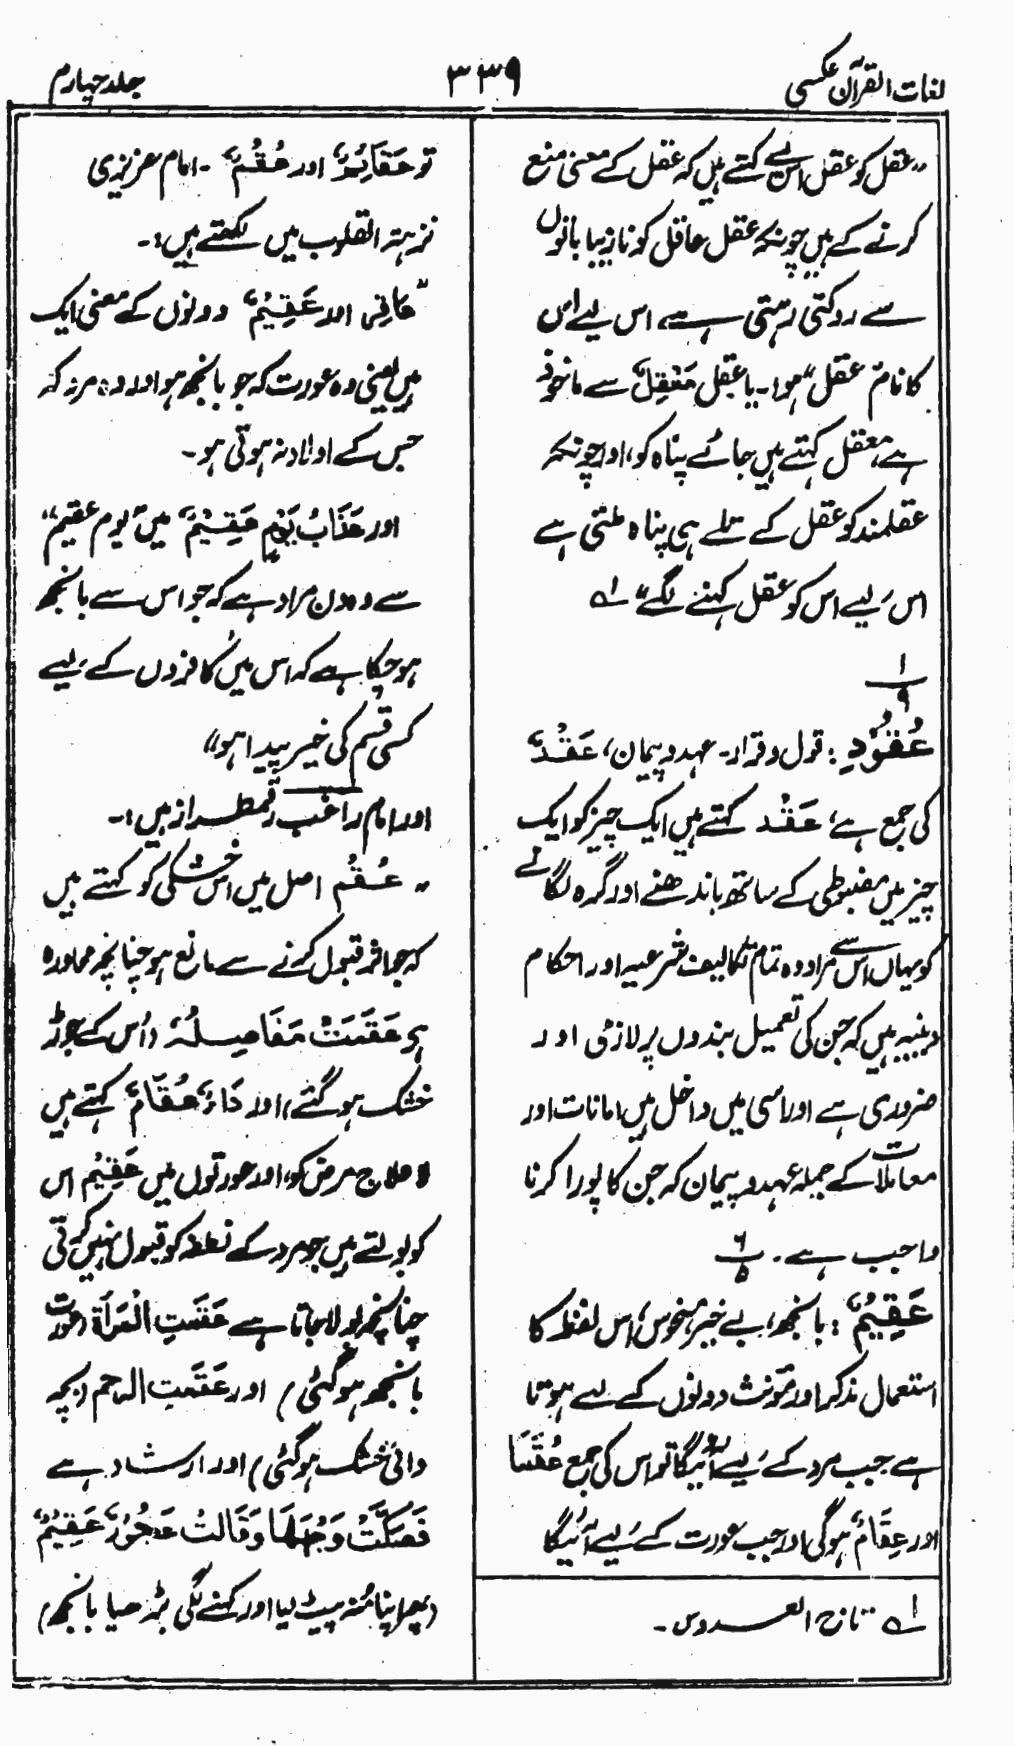 لغات القرآن عکسی
۳۳۹
جلد چہارم
”عقل کو عقل اس لیے کہتے ہیں کہ عقل کے معنی منع
کرنے کے ہیں چونکہ عقل عاقل کو نازیبا باتوں
سے روکتی رہتی ہے اس لیے اس
کا نام ”عقل“ ہوا۔ یا عقل مَعْقِلٌ سے ماخوذ
ہے، معقل کہتے ہیں جائے پناہ کو، اور چونکہ
عقلمند کو عقل کے تلے ہی پناہ ملتی ہے
اس لیے اس کو عقل کہنے لگے“ لہ
۱/۹
عُقُوْدِ: قول و قرار۔ عہد و پیمان، عَقْدٌ
کی جمع ہے، عَقْد کہتے ہیں ایک چیز کو ایک
چیز میں مضبوطی کے ساتھ باندھنے اور گرہ لگانے
کو یہاں اس سے مراد وہ تمام تکالیف شرعیہ اور احکام
دینیہ ہیں کہ جن کی تعمیل بندوں پر لازمی اور
ضروری ہے اور اسی میں داخل ہیں امانات اور
معاملات کے جملہ عہد و پیمان کہ جن کا پورا کرنا
واجب ہے۔ ۶/۵
عَقِیْمٌ: بانجھ، بے خیر، منحوس، اس لفظ کا
استعمال مذکر اور مؤنث دونوں کے لیے ہوتا
ہے جب مرد کے لیے آئیگا تو اس کی جمع عُقَمَا
اور عِقَامٌ ہوگی اور جب عورت کے لیے آئیگا
لہ تاج العروس۔
تو عَقَائِمُ اور عُقُمٌ۔ امام عزیزی
نزہتہ القلوب میں لکھتے ہیں:۔
”عاقر اور عَقِیْمٌ دونوں کے معنی ایک
ہیں یعنی وہ عورت کہ جو بانجھ ہو اور وہ مرد کہ
جس کے اولاد نہ ہوتی ہو۔
اور عَذَابُ یَوْمٍ عَقِیْمٍ میں ”یوم عقیم“
سے وہ دن مراد ہے کہ جو اس سے بانجھ
ہو چکا ہے کہ اس میں کافروں کے لیے
کسی قسم کی خیر پیدا ہو“
اور امام راغب رقمطراز ہیں:۔
” عُقْم اصل میں اس خشکی کو کہتے ہیں
کہ جو اثر قبول کرنے سے مانع ہو چنانچہ محاورہ
ہے عَقَمَتْ مَفَاصِلُہٗ (اُس کے جوڑ
خشک ہو گئے) اور دَاءٌ عُقَامٌ کہتے ہیں
لا علاج مرض کو، اور عورتوں میں عَقِیْم اس
کو بولتے ہیں جو مرد کے نطفہ کو قبول نہیں کرتی
چنانچہ بولا جاتا ہے عَقَمَتِ الْمَرْأَۃُ (عورت
بانجھ ہو گئی) اور عَقَمَتِ الرحم (بچہ
دانی خشک ہو گئی) اور ارشاد ہے
فَصَکَّتْ وَجْہَہَا وَقَالَتْ عَجُوْزٌ عَقِیْمٌ
(پھر اپنا منہ پیٹ لیا اور کہنے لگی بڑھیا بانجھ)